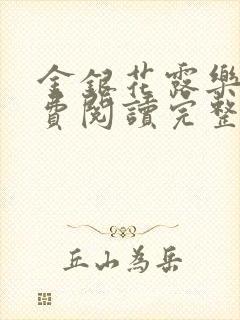 金銀花露樂
費閱讀完整
丘山為岳